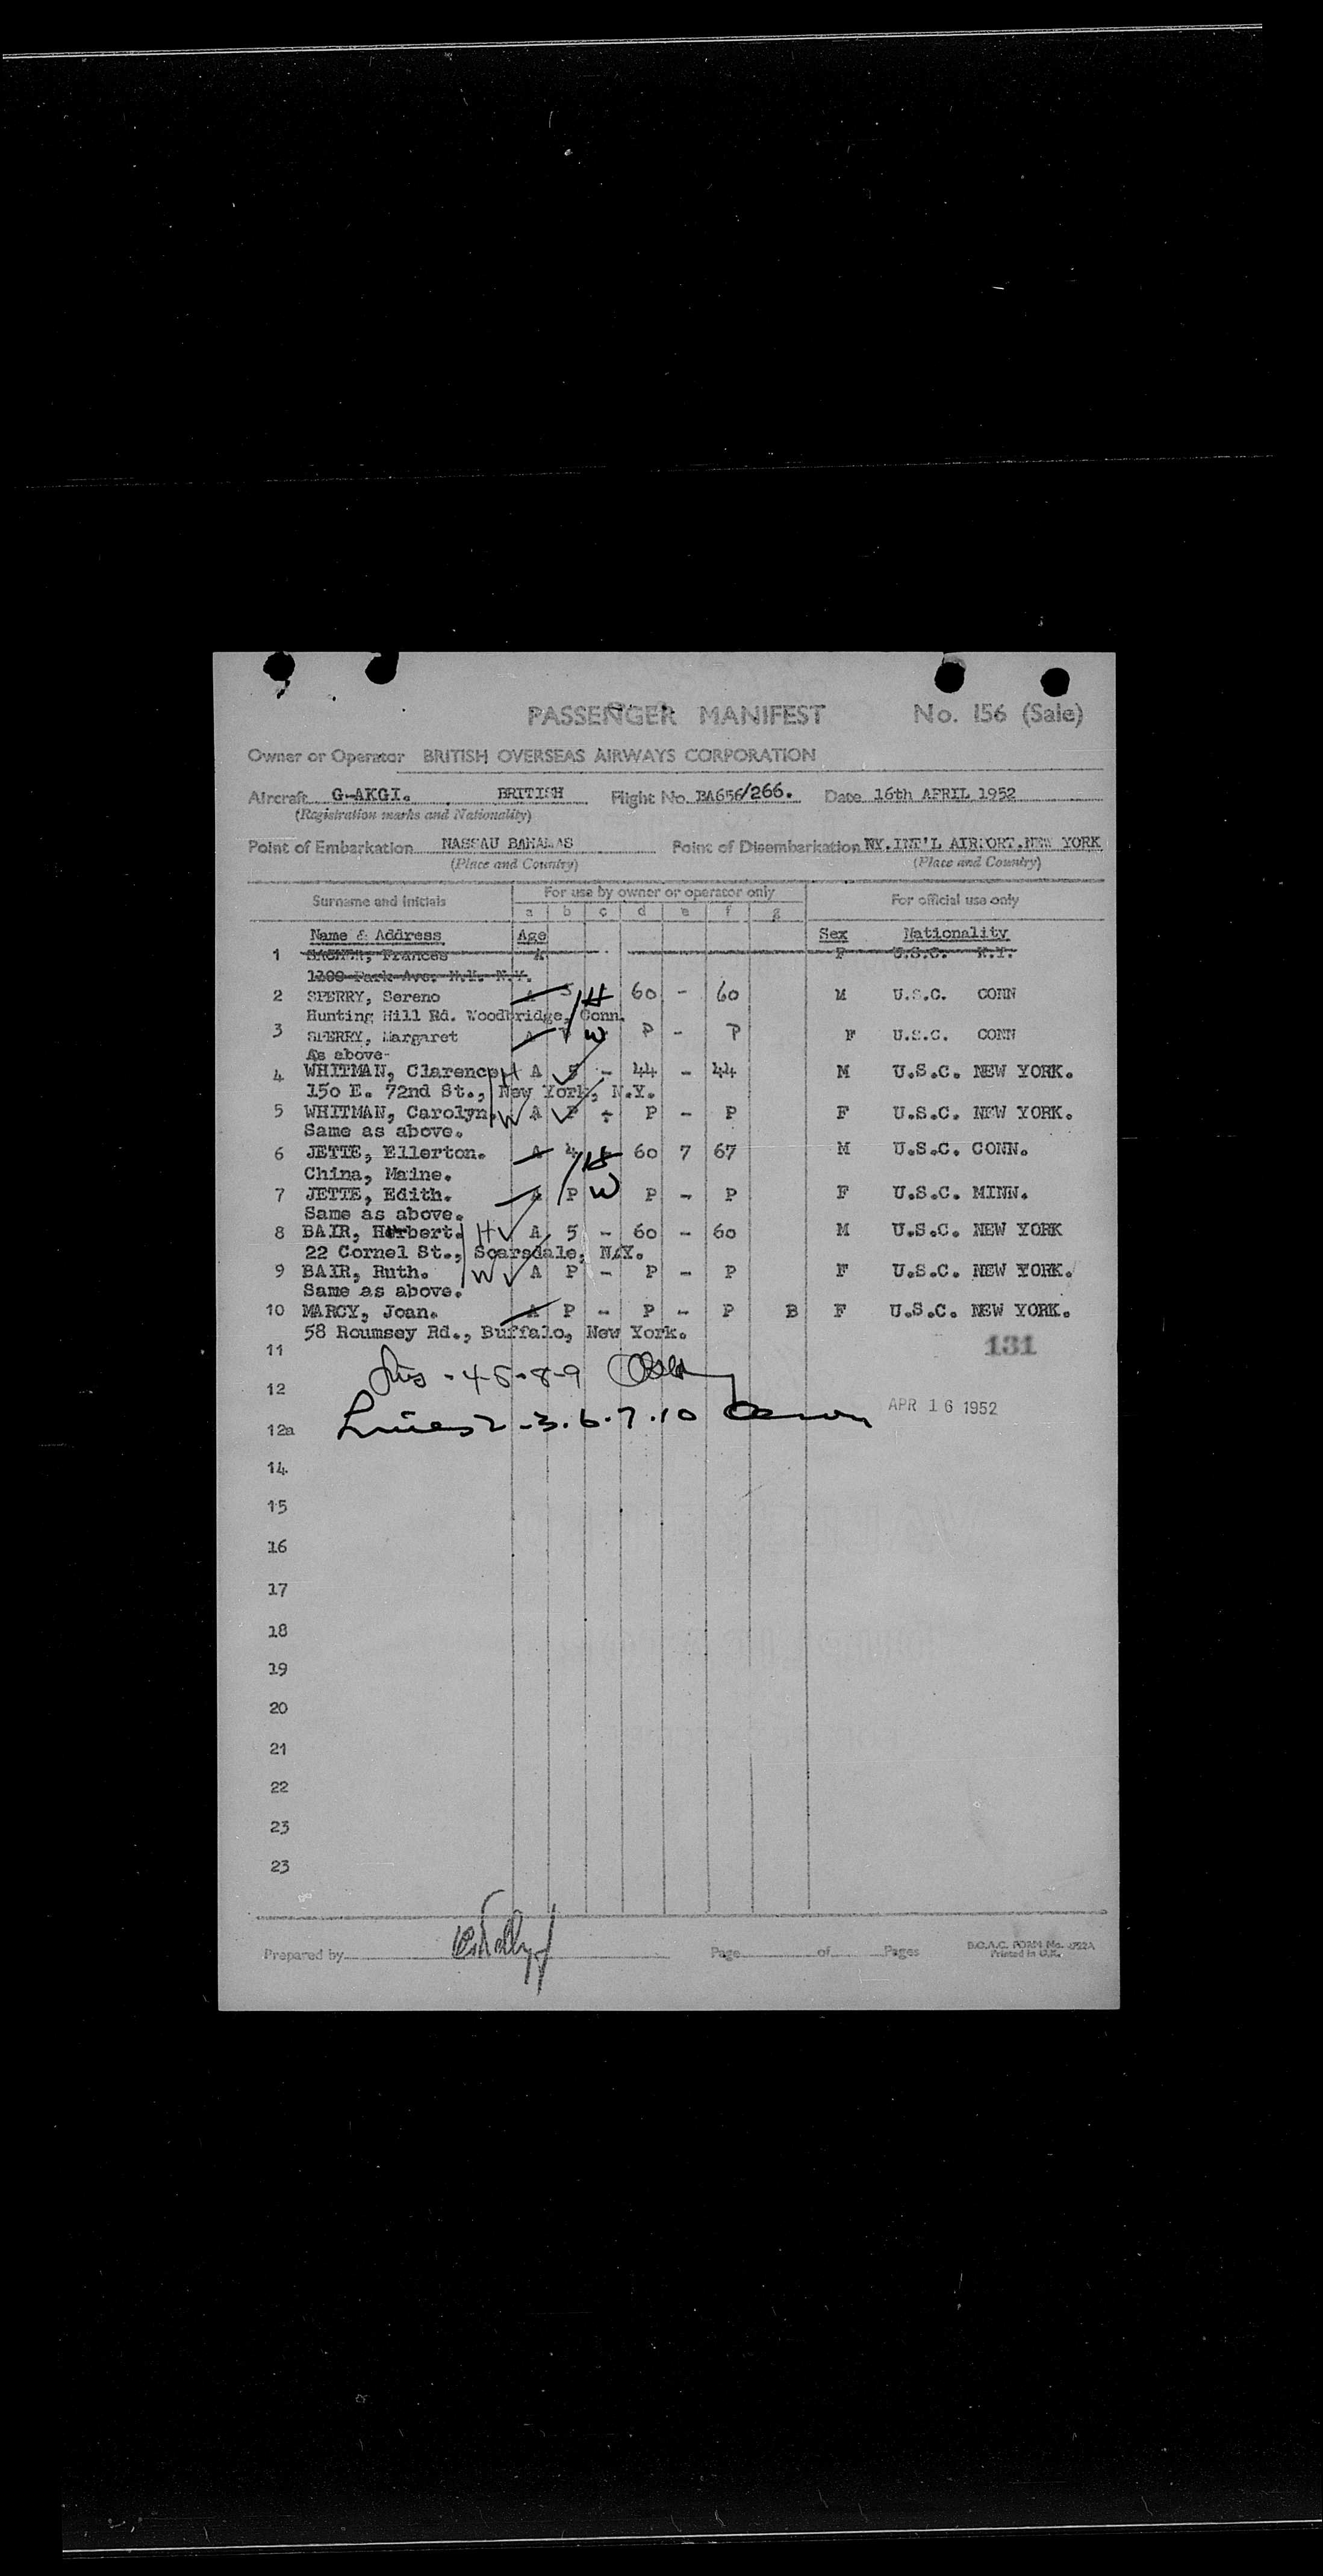 PASSENGER MANIFEST No. 156 (Sale)
Owner or Operator BRITISH OVERSEAS AIRWAYS CORPORATION
Aircraft G-AKGI. BRITISH Flight No. BA656/266. Date 16th APRIL 1952
(Registration marks and Nationality)
Point of Embarkation NASSAU BAHAMAS Point of Disembarkation NY.INT'L AIRPORT.NEW YORK
(Place and Country) (Place and Country)
Surname and initials For use by owner or operator only For official use only
a b c d e f g
Name & Address Age Sex Nationality
1 Frances A F U.S.C. N.Y.
1200 Park Ave. N.Y. N.Y.
2 SPERRY, Sereno A 5 H 60 - 60 M U.S.C. CONN
Hunting Hill Rd. Woodbridge, Conn.
3 SPERRY, Margaret A P W P - P F U.S.C. CONN
As above-
4 WHITMAN, Clarence H A 5 - 44 - 44 M U.S.C. NEW YORK.
150 E. 72nd St., New York, N.Y.
5 WHITMAN, Carolyn. W A P - P - P F U.S.C. NEW YORK.
Same as above.
6 JETTE, Ellerton. A 4 H 60 7 67 M U.S.C. CONN.
China, Maine.
7 JETTE, Edith. A P W P - P F U.S.C. MINN.
Same as above.
8 BAIR, Herbert. H A 5 - 60 - 60 M U.S.C. NEW YORK
22 Cornel St., Scarsdale, N.Y.
9 BAIR, Ruth. W A P - P - P F U.S.C. NEW YORK.
Same as above.
10 MARCY, Joan. A P - P - P B F U.S.C. NEW YORK.
58 Roumsey Rd., Buffalo, New York.
131
11
- 4-5-8-9
12
APR 16 1952
Lines 2-3.6.7.10
12a
14
15
16
17
18
19
20
21
22
23
23
Prepared by Page of Pages
B.O.A.C. FORM No.
Printed in U.K.